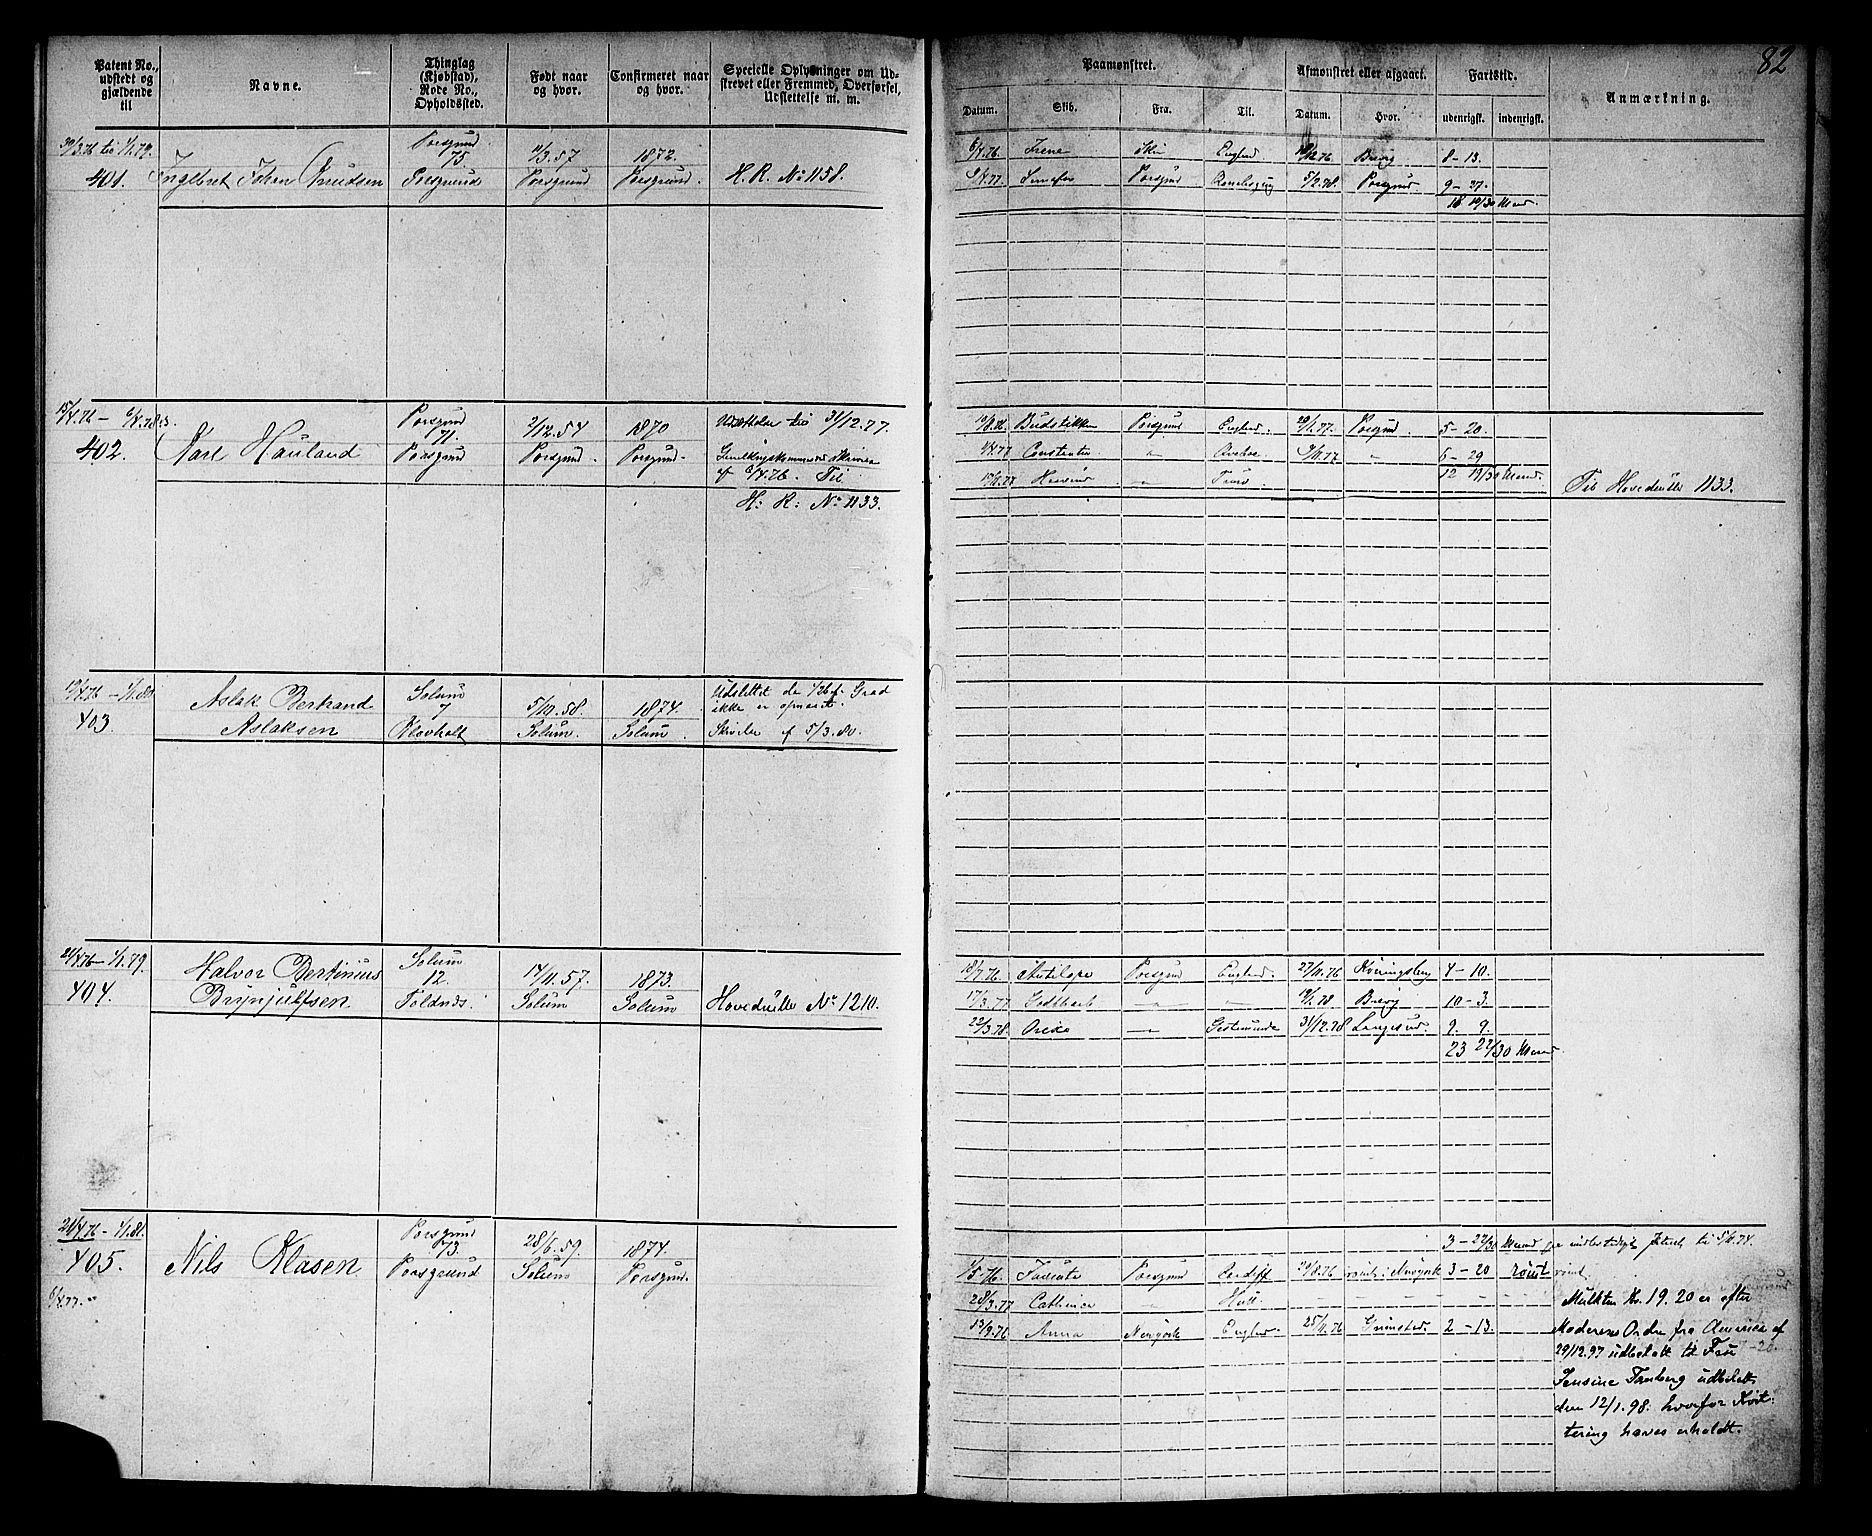 82
Patent No., udstedt og gjældende til
Navne.
Thinglag (Kjøbstad), Rode No., Opholdssted.
Født naar og hvor.
Confirmeret naar og hvor.
Specielle Oplysninger om Udskrevet eller Fremmed, Overførsel, Udslettelse m. m.
Paamønstret.
Afmønstret eller afgaaet.
Fartstid.
Anmærkning.
Datum. Skib. Fra. Til. Datum. Hvor. udenrigsk. indenrigsk.
30/3.76 til 1/1.79.
401. Ingelbret Johan Knudsen
Porsgrund 75. Porsgrund
11/3.57 Porsgrund
1872. Porsgrund.
H. R. No 1158.
6/4.76 Irene Skien England 12.76 Brevig 8-13.
4.77 Porsgrund 5/2.78. Porsgrund. 9-27.
18 10/30 Maaned.
15/4.76 - 6/4.78
402. Karl Hauland
Porsgrund 71. Porsgrund
2/12.54 Porsgrund.
1870 Porsgrund.
Udsættelse til 31/12.77.
af 6/4.76. Til
H: R: No 1133.
Budstikken Porsgrund England. 1.77. Porsgrund. 5-20.
4.77 " 11.77 " 6-29
12 19/30 Maaned.
Til Hovedrulle 1133.
4.76 - 1/1.80.
403. Aslak Bertrand Aslaksen
Solum 7 Klovholt
5/10.58. Solum.
1874. Solum.
Udslettet da Grad
ikke er opnaaet.
Skrivelse af 5/3.80.
4.76 - 1/1.79.
404. Halvor Bertinius Brynjulfsen
Solum 12. Toldnæs.
14/11.57. Solum
1873. Solum
Hovedrulle No 1210.
18/7.76. Antilope Porsgrund England. 27/11.76 Kønningsberg 4-10.
17/3.77 " " 1.78. Brevig 10-3.
22/3.78. " Gestemunde 31/12.78 Langesund. 9. 9.
23 22/30 Maaned
4.76 - 1/1.81.
405. Nils Klasen
Porsgrund 73. Porsgrund
28/6.59. Solum
1874. Porsgrund.
6/4.77.
3-27/30 Maaned
1/5.76 Porsgrund Cardiff 8.76 rømt i Newyork 3-20 rømt
28/3.77 Cathinca " Hull
13/9.76 Anna Newyork England. 25/11.76 Grimstad. 2-13.
Mulkten Kr. 19.20 er efter
Moderens Ordre fra America af
29/12.97 udbetalt til Fru
Jensine Tanberg udbetalt
den 12/1.98. hvorfor Kvit-
tering haves erholdt.